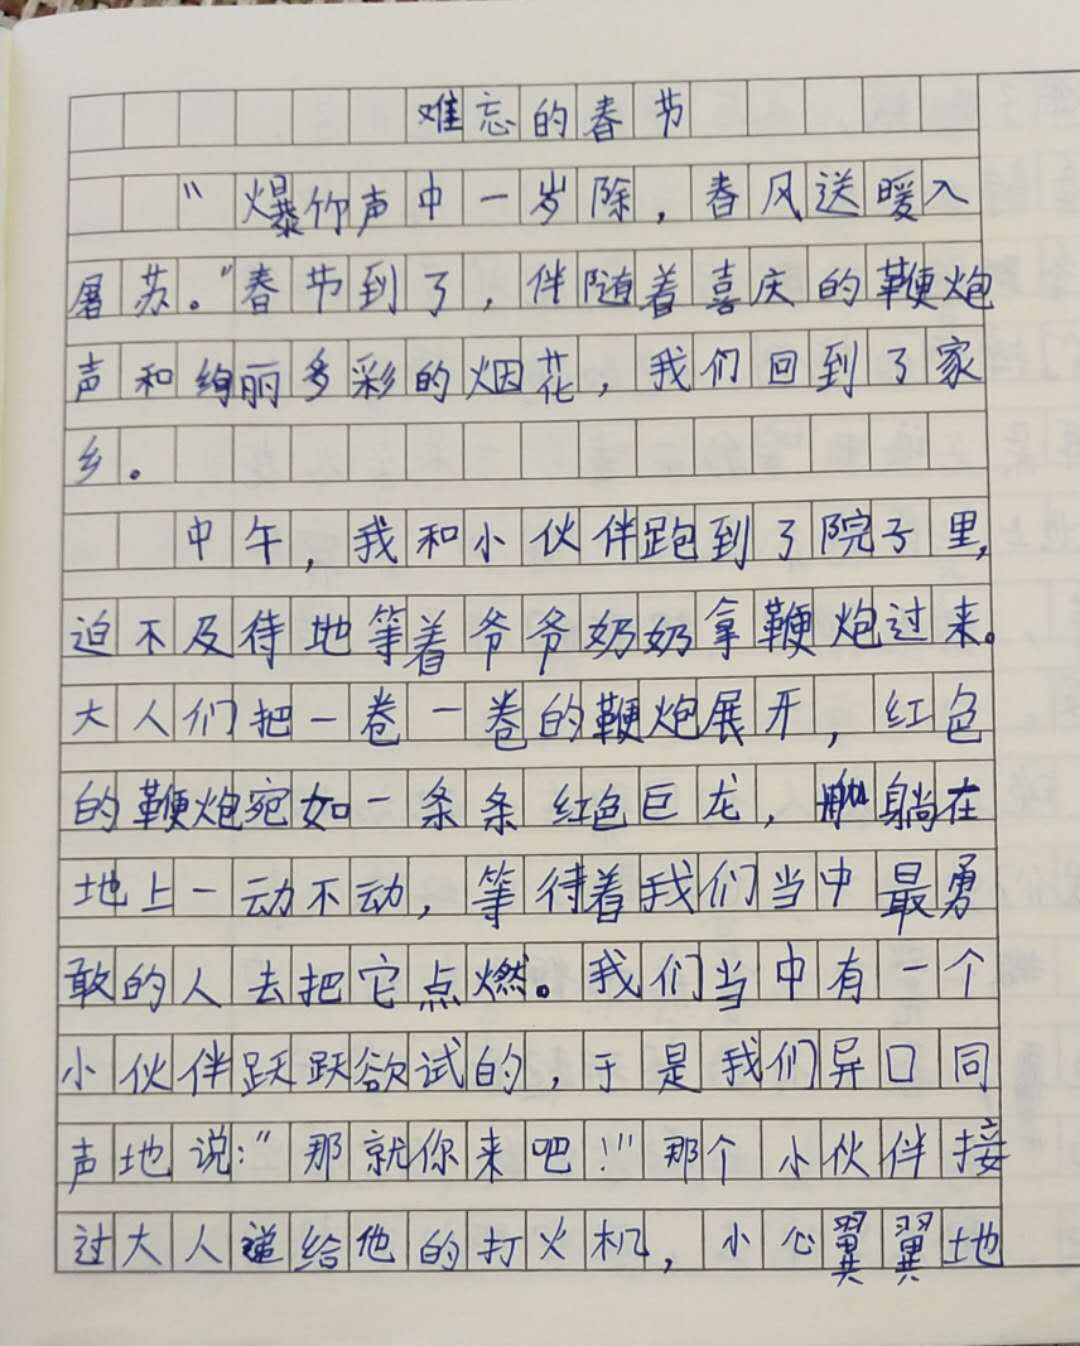 难忘的春节
“爆竹声中一岁除，春风送暖入
屠苏。”春节到了，伴随着喜庆的鞭炮
声和绚丽多彩的烟花，我们回到了家
乡。
中午，我和小伙伴跑到了院子里，
迫不及待地等着爷爷奶奶拿鞭炮过来。
大人们把一卷一卷的鞭炮展开，红色
的鞭炮宛如一条条红色巨龙，躺在
地上一动不动，等待着我们当中最勇
敢的人去把它点燃。我们当中有一个
小伙伴跃跃欲试的，于是我们异口同
声地说：“那就你来吧！”那个小伙伴接
过大人递给他的打火机，小心翼翼地